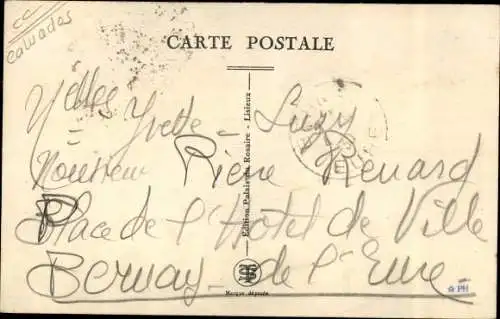 CC
Calvados
CARTE POSTALE
Mlles Yvette - Suzy
Monsieur Pière Renard
Place de l'Hôtel de Ville
Bernay - de l'Eure
Edition Palais du Rosaire - Lisieux
Marque déposée
PH